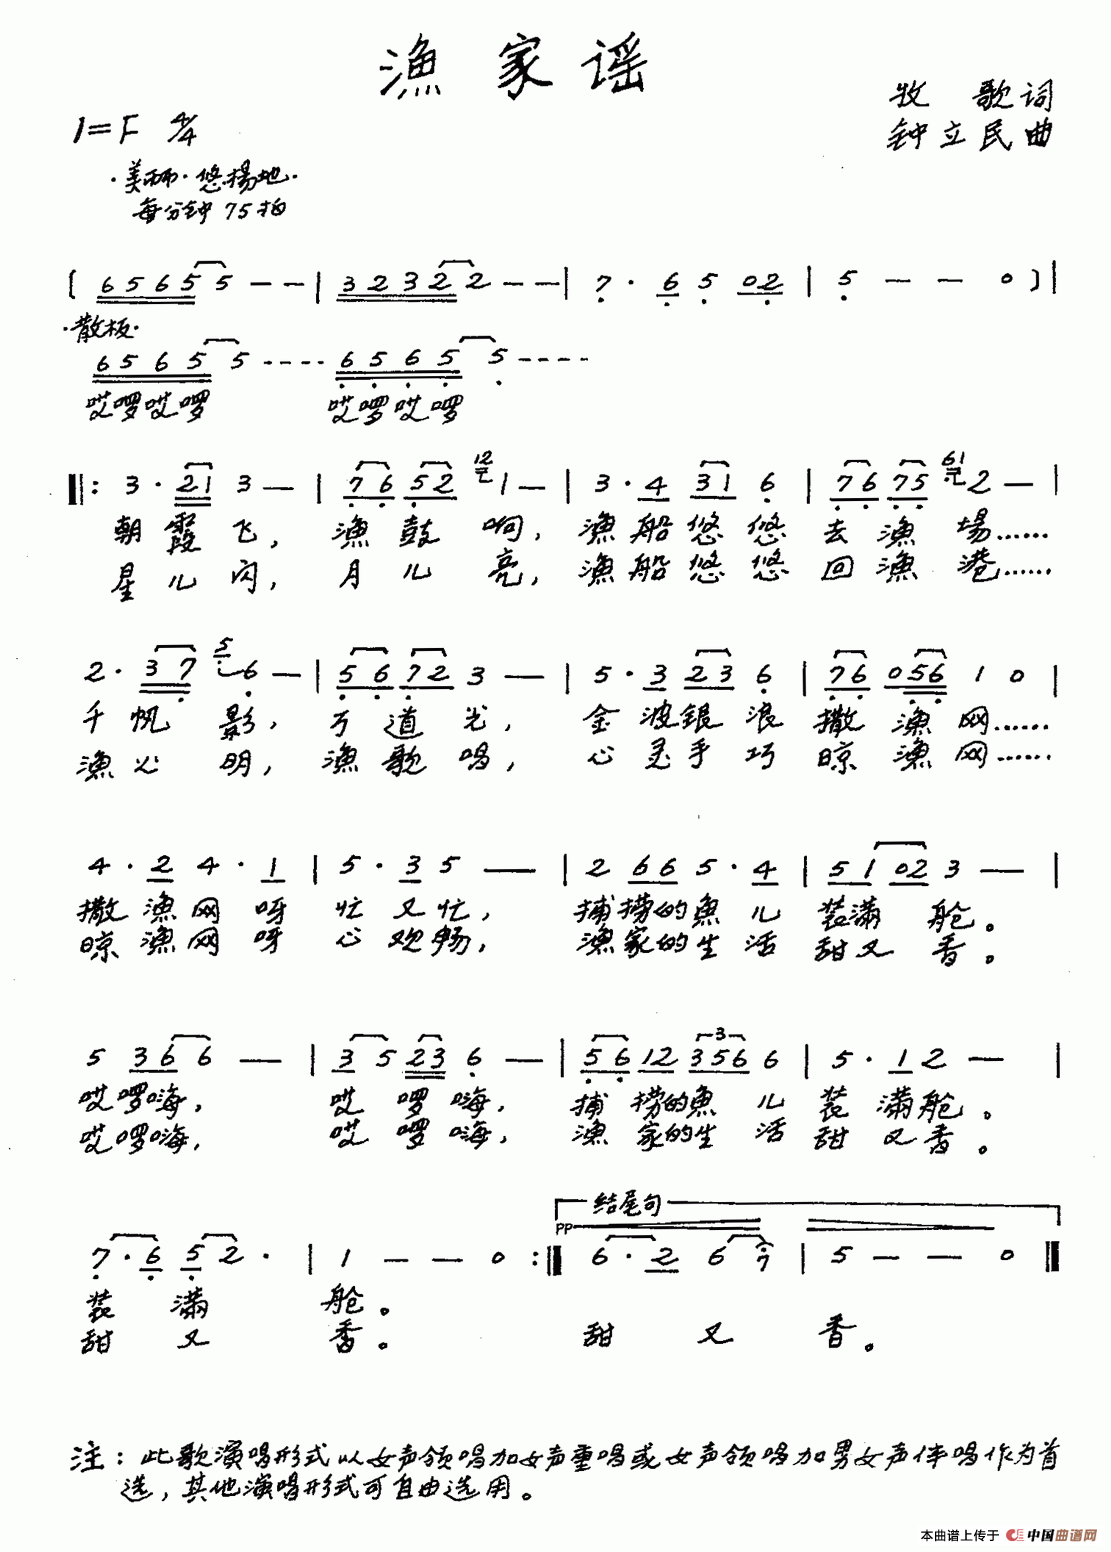 渔家谣
牧歌词
1=F 4/4
钟立民曲
·美丽·悠扬地·
每分钟75拍
〔 6 5 6 5 5 - - | 3 2 3 2 2 - - | 7 · 6 5 0 2 | 5 - - 0 〕|
·散板·
6 5 6 5 5 - - - - 6 5 6 5 5 - - - -
哎啰哎啰 哎啰哎啰
‖: 3 · 2 1 3 - | 7 6 5 2 12 1 - | 3 · 4 3 1 6 | 7 6 7 5 61 2 - |
朝霞飞, 渔鼓响, 渔船悠悠去渔場……
星儿闪, 月儿亮, 渔船悠悠回渔港……
2 · 3 7 5 6 - | 5 6 7 2 3 - | 5 · 3 2 3 6 | 7 6 0 5 6 1 0 |
千帆影, 万道光, 金波银浪撒渔网……
渔火明, 渔歌唱, 心灵手巧晾渔网……
4 · 2 4 · 1 | 5 · 3 5 - | 2 6 6 5 · 4 | 5 1 0 2 3 - |
撒渔网呀忙又忙, 捕捞的魚儿装满舱。
晾渔网呀心欢畅, 渔家的生活甜又香。
5 3 6 6 - | 3 5 2 3 6 - | 5 6 1 2 3 5 6 6 | 5 · 1 2 - |
3
哎啰嗨, 哎啰嗨, 捕捞的魚儿装满舱。
哎啰嗨, 哎啰嗨, 渔家的生活甜又香。
结尾句
pp
7 · 6 5 2 · | 1 - - 0 :‖ 6 · 2 6 7 | 5 - - 0 ‖
装满舱。
甜又香。 甜又香。
注：此歌演唱形式以女声领唱加女声重唱或女声领唱加男女声伴唱作为首
选，其他演唱形式可自由选用。
本曲谱上传于 中国曲谱网